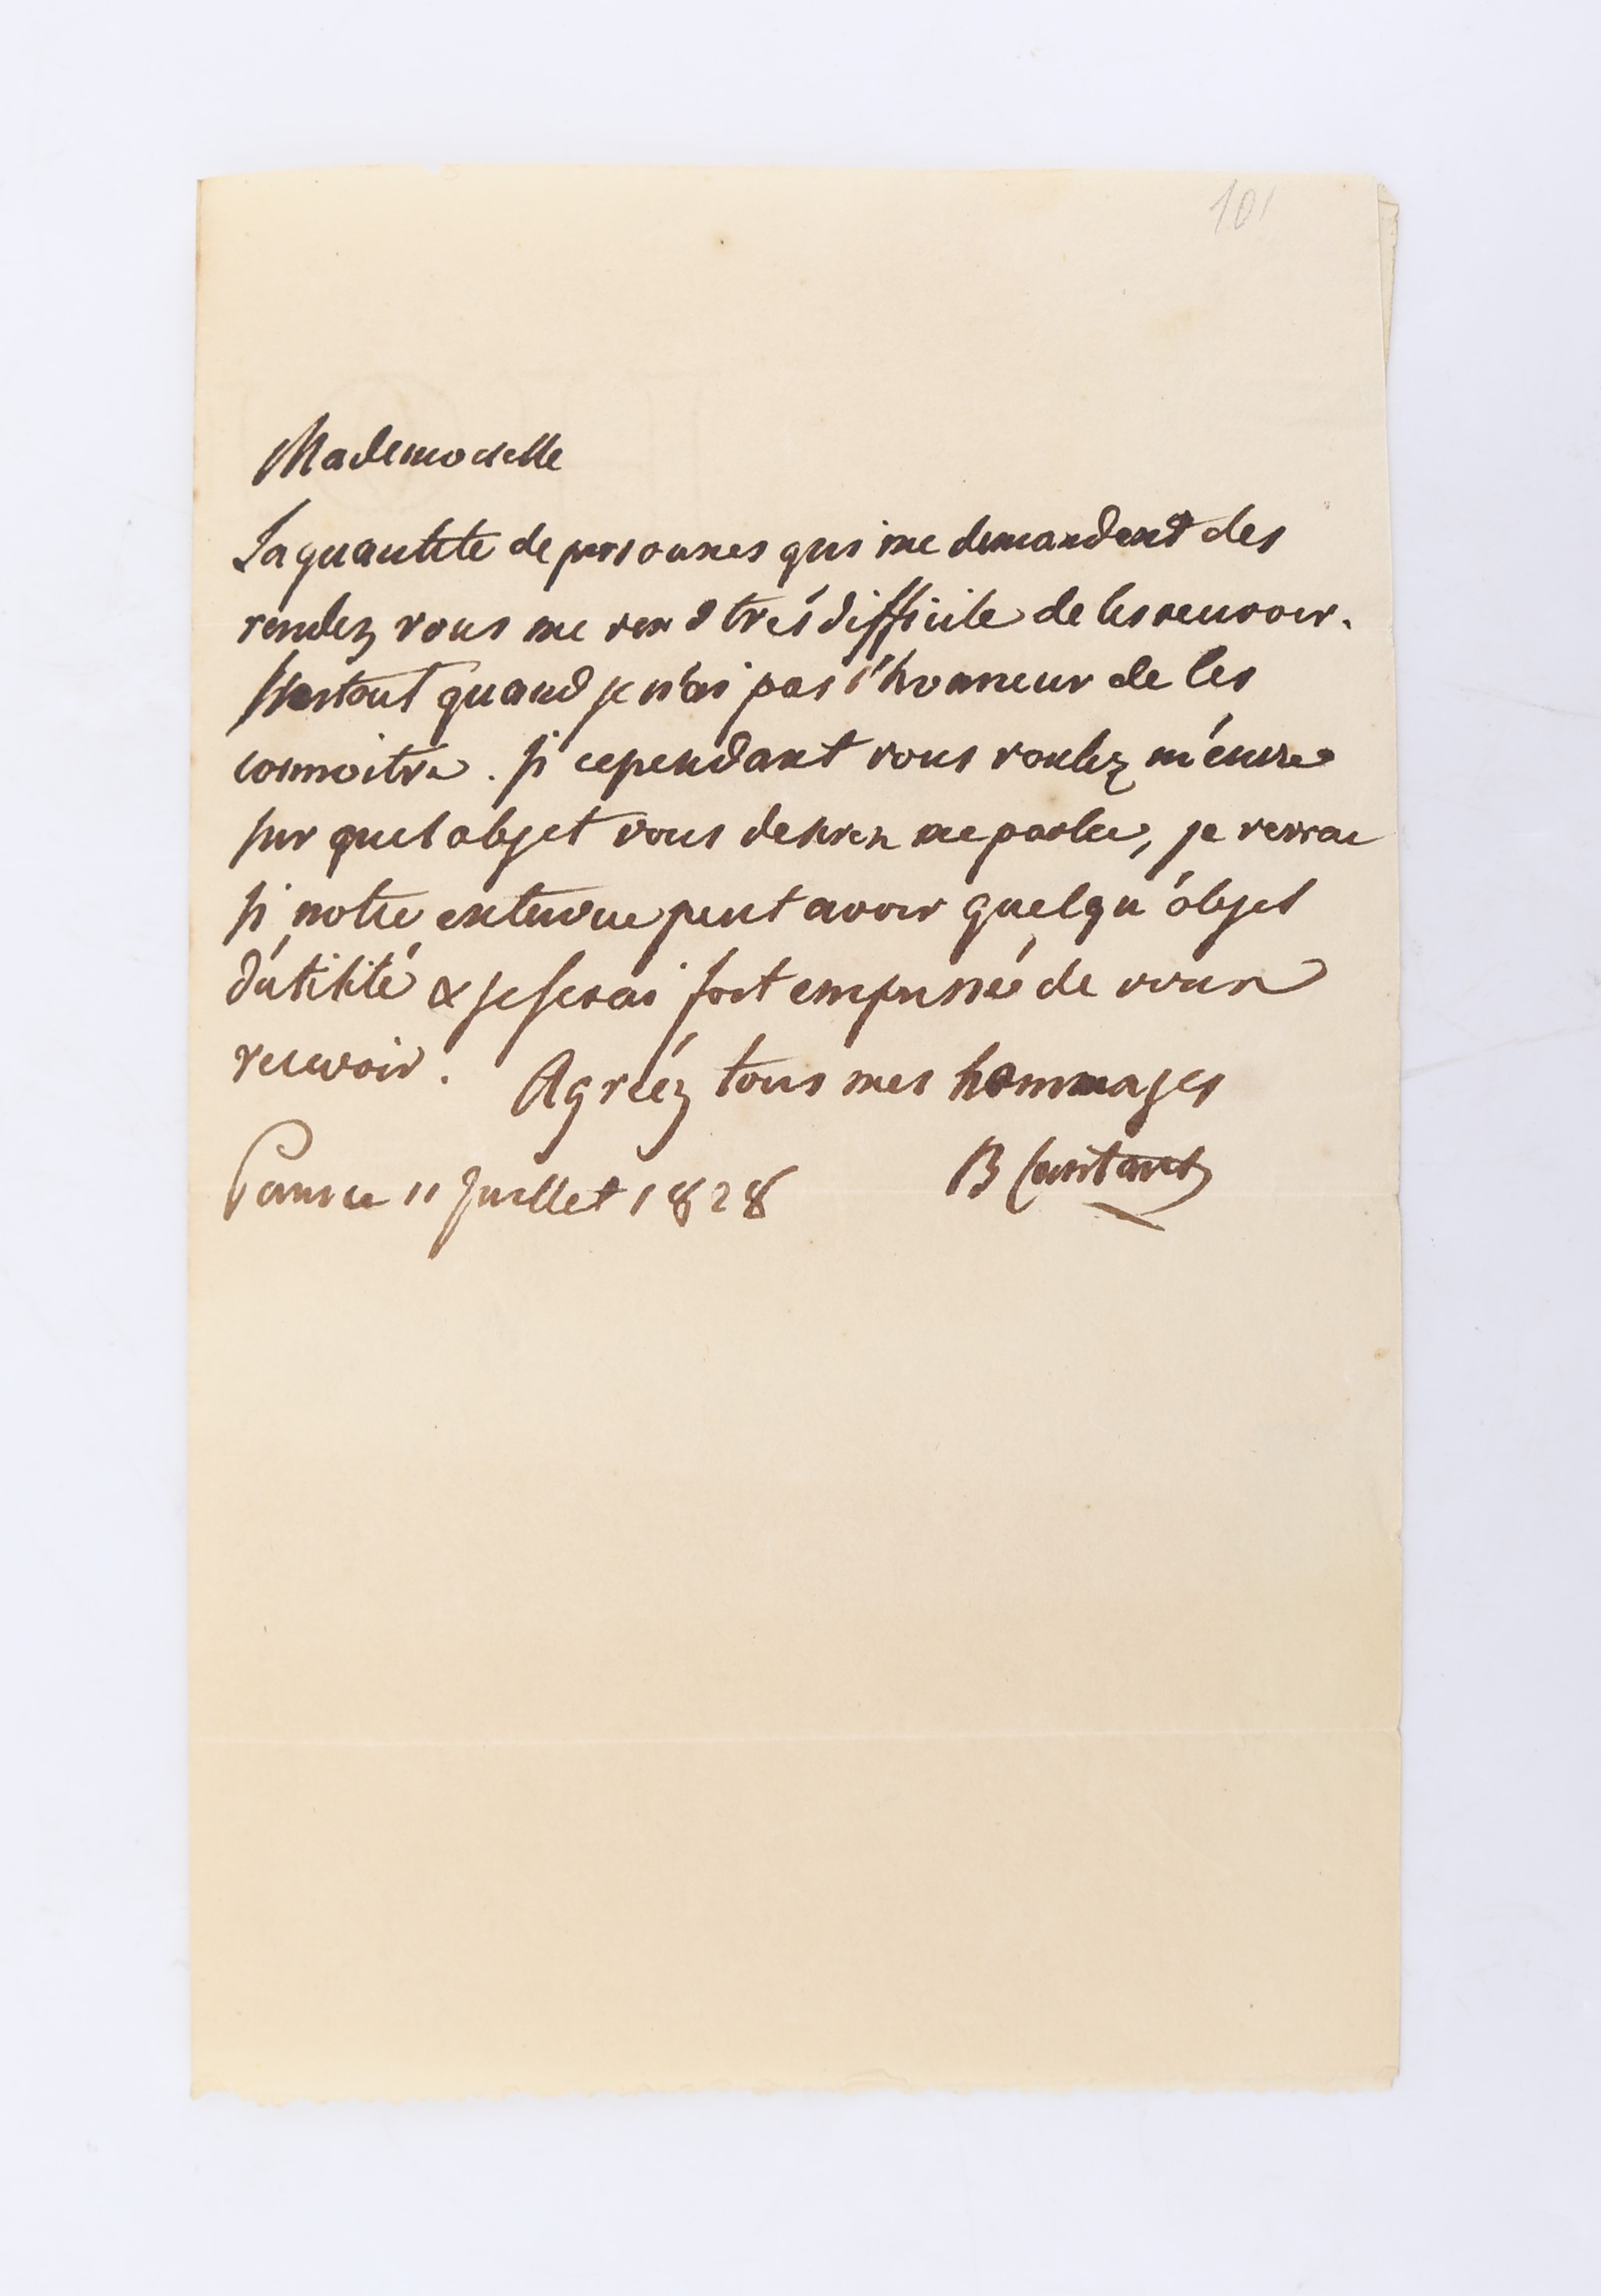 101
Mademoiselle
La quantité de personnes qui me demandent des
rendez vous me rend très difficile de les recevoir.
Surtout quand je n'ai pas l'honneur de les
connoitre. Si cependant vous voulez m'écrire
sur quel objet vous desirez me parler, je verrai
si notre entrevue peut avoir quelqu'objet
d'utilité & je serai fort empressé de vous
recevoir. Agréez tous mes hommages
B Constant
Paris ce 11 Juillet 1828